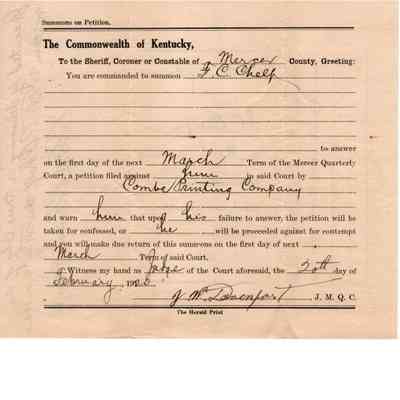 Summons on Petition.
The Commonwealth of Kentucky,
To the Sheriff, Coroner or Constable of Mercer County, Greeting:
You are commanded to summon F. C. Chelf
to answer
on the first day of the next March Term of the Mercer Quarterly
Court, a petition filed against him in said Court by
Combs Printing Company
and warn him that upon his failure to answer, the petition will be
taken for confessed, or he will be proceeded against for contempt
and you will make due return of this summons on the first day of next
March Term of said Court.
Witness my hand as Judge of the Court aforesaid, the 20th day of
February 192
J. W. Davenport J. M. Q. C.
The Herald Print